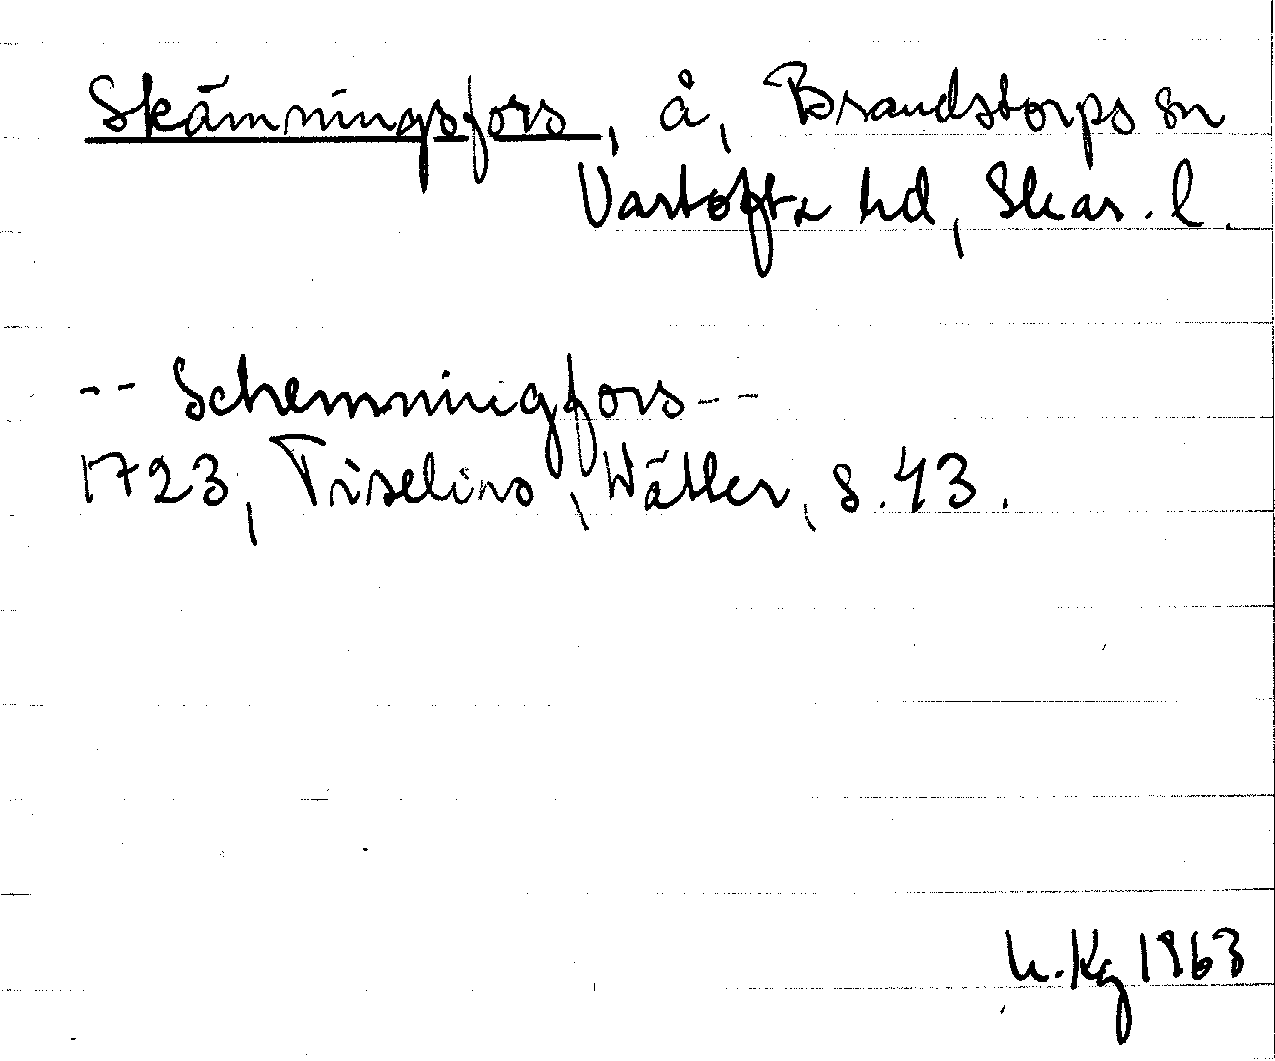 Skämningsfors, å, Brandstorps sn
Vartofta hd, Skar. l.
-- Schemmingfors --
1723, Tiselius, Wätter, s. 43.
H. Kg 1963